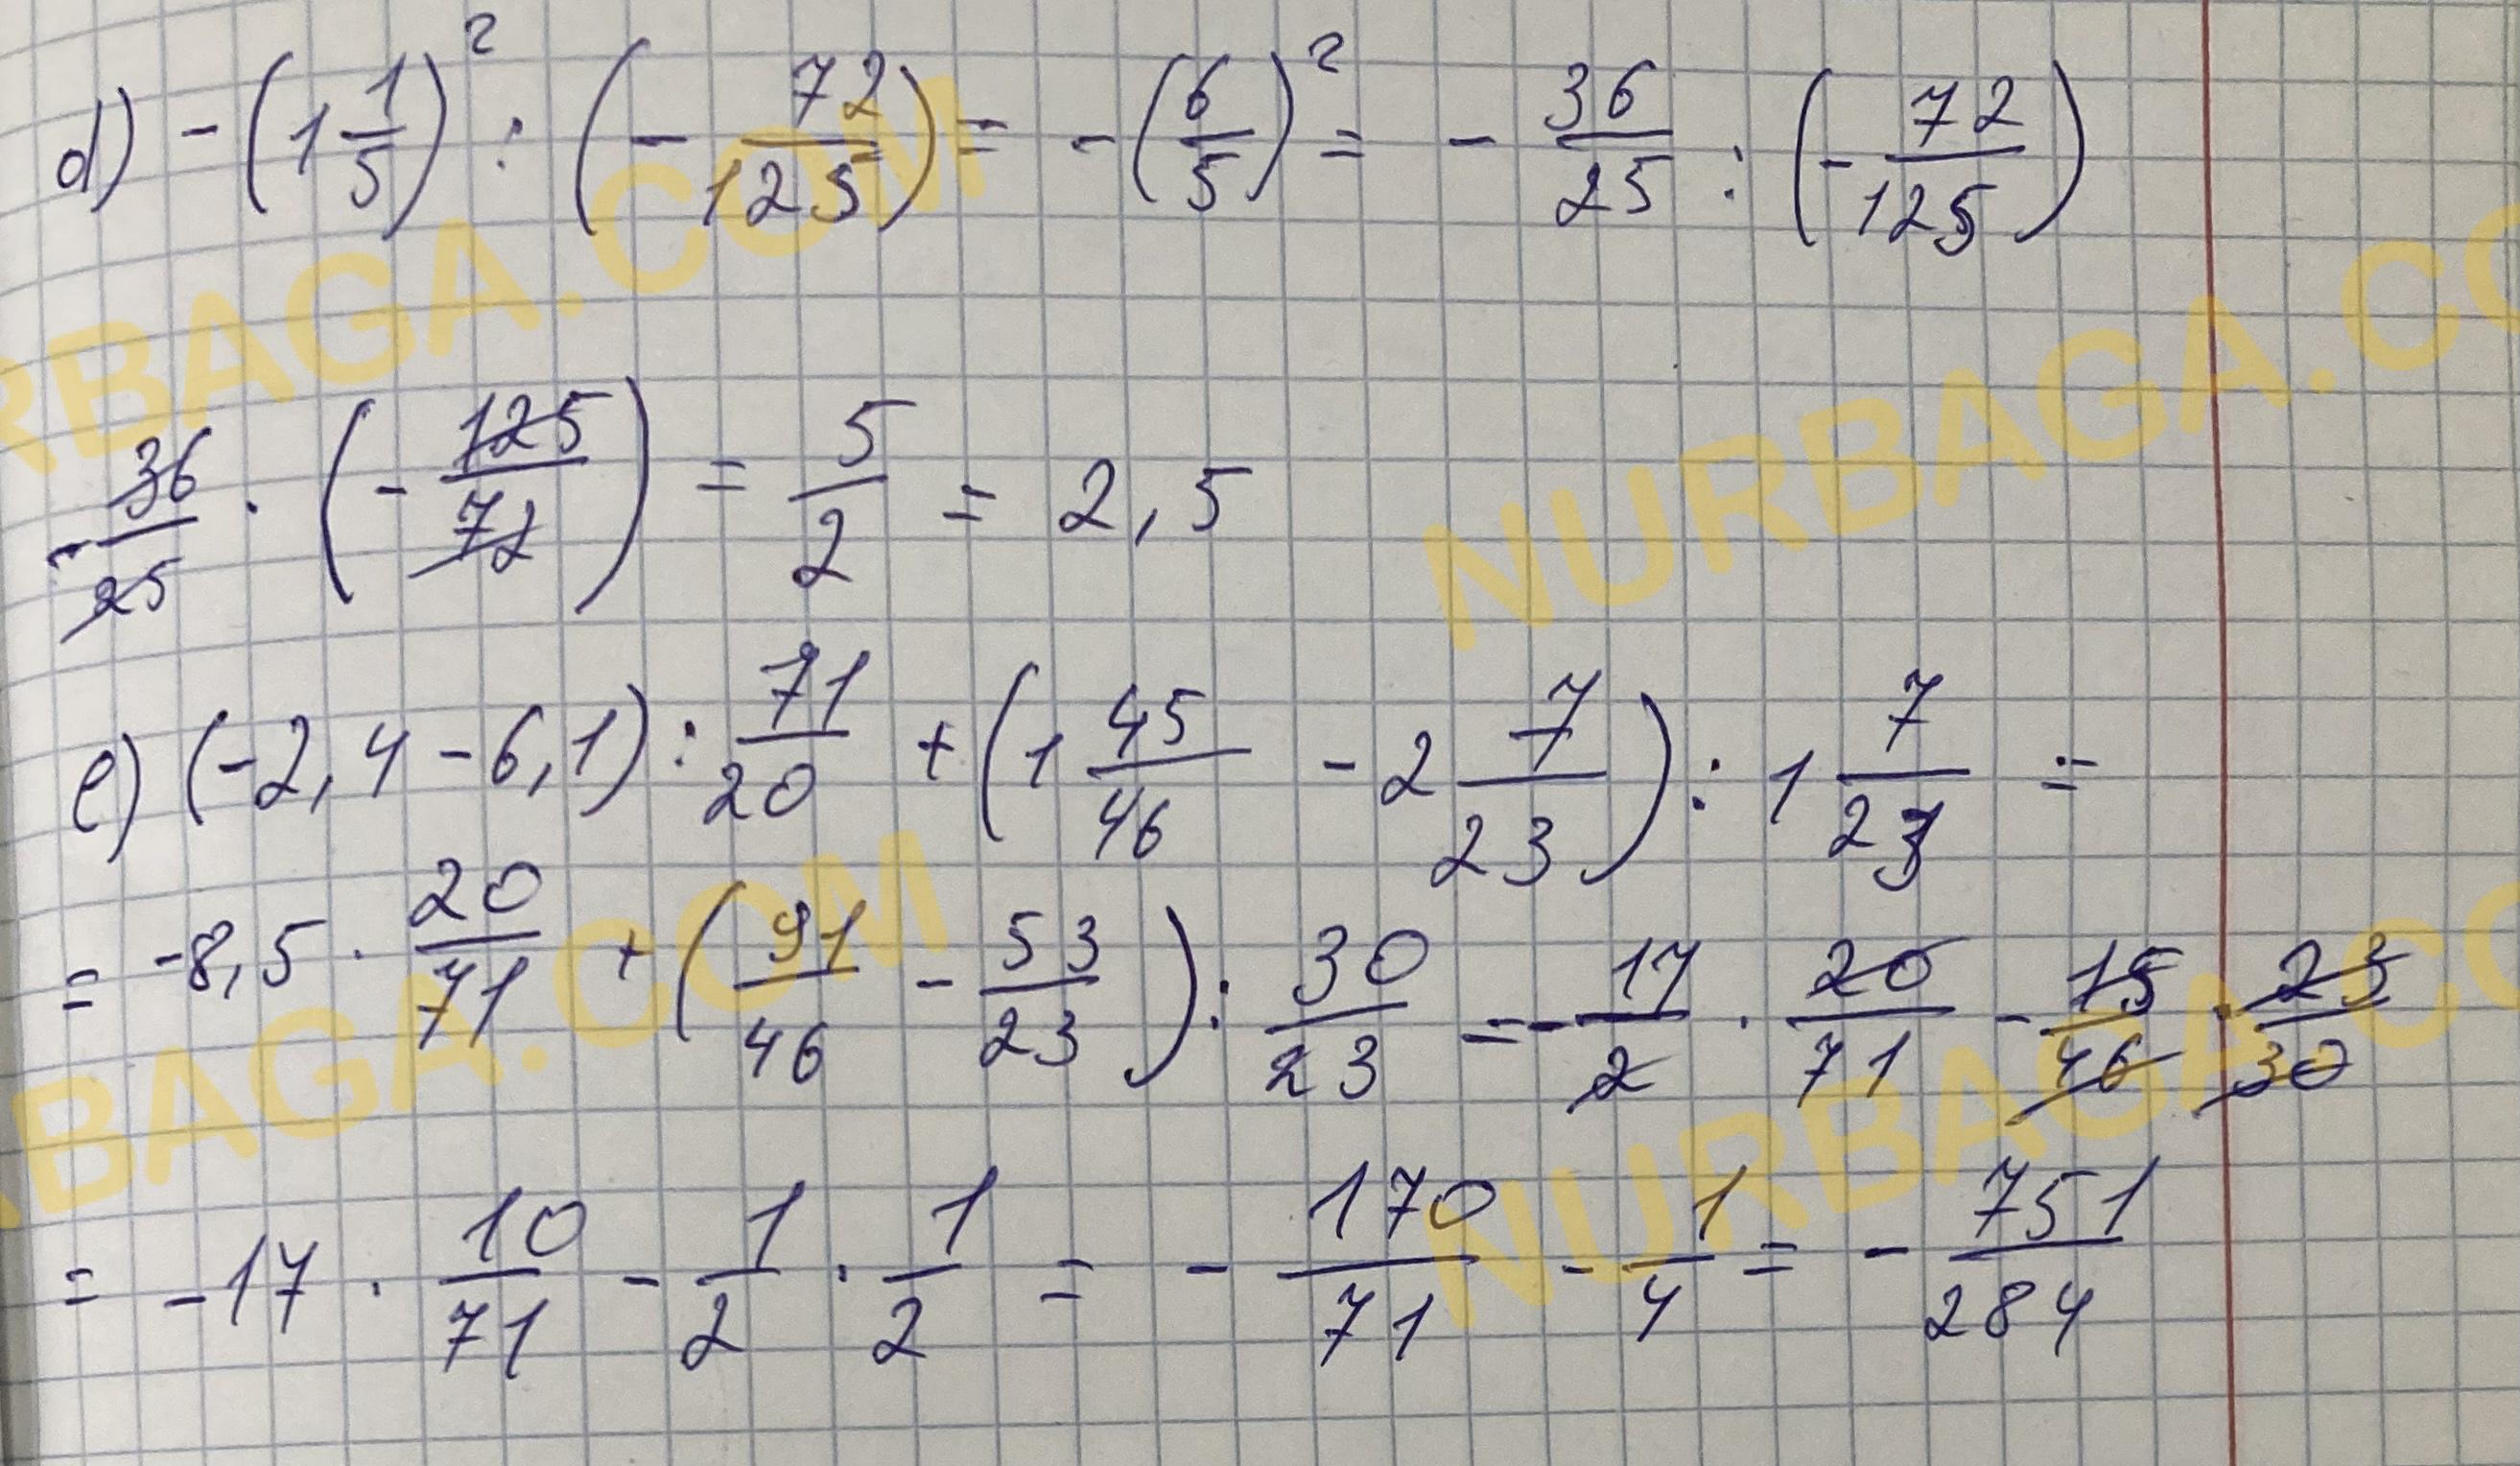 d) -(1 1/5)² : (- 72/125) = -(6/5)² = - 36/25 : (- 72/125)
- 36/25 · (- 125/72) = 5/2 = 2,5
e) (-2,4 - 6,1) : 71/20 + (1 45/46 - 2 7/23) : 1 7/23 =
= -8,5 · 20/71 + (91/46 - 53/23) : 30/23 = - 17/2 · 20/71 - 15/46 · 23/30
= -17 · 10/71 - 1/2 · 1/2 = - 170/71 - 1/4 = - 751/284
NURBAGA.COM
NURBAGA.COM
NURBAGA.COM
NURBAGA.COM